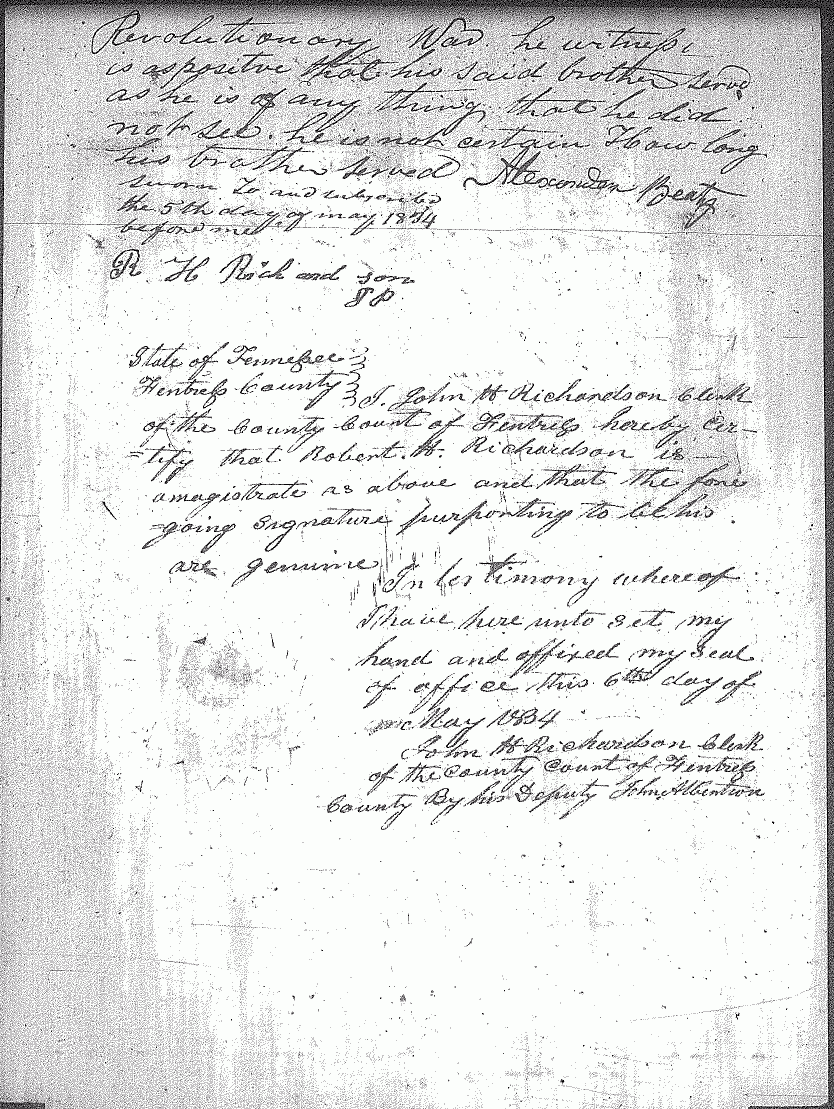 Revolutionary War. he witness
is aspositve that his said brother serve
as he is of any thing that he did
not see. he is not certain How long
his brother served Alexander Beaty
sworn To and subscribed
the 5th day of may 1834
before me
R H Rich and son
JP
State of Tennessee
Fentress County
I. John H Richardson Clerk
of the County Court of Fentress hereby cer-
-tify that Robert. H. Richardson is
amagistrate as above and that the fore
-going signature purporting to be his
are genuine
In testimony whereof
I have here unto set my
hand and affixed my seal
of office this 6th day of
May 1834
John H Richardson Clerk
of the County Court of Fentress
County By his Deputy John Albertson